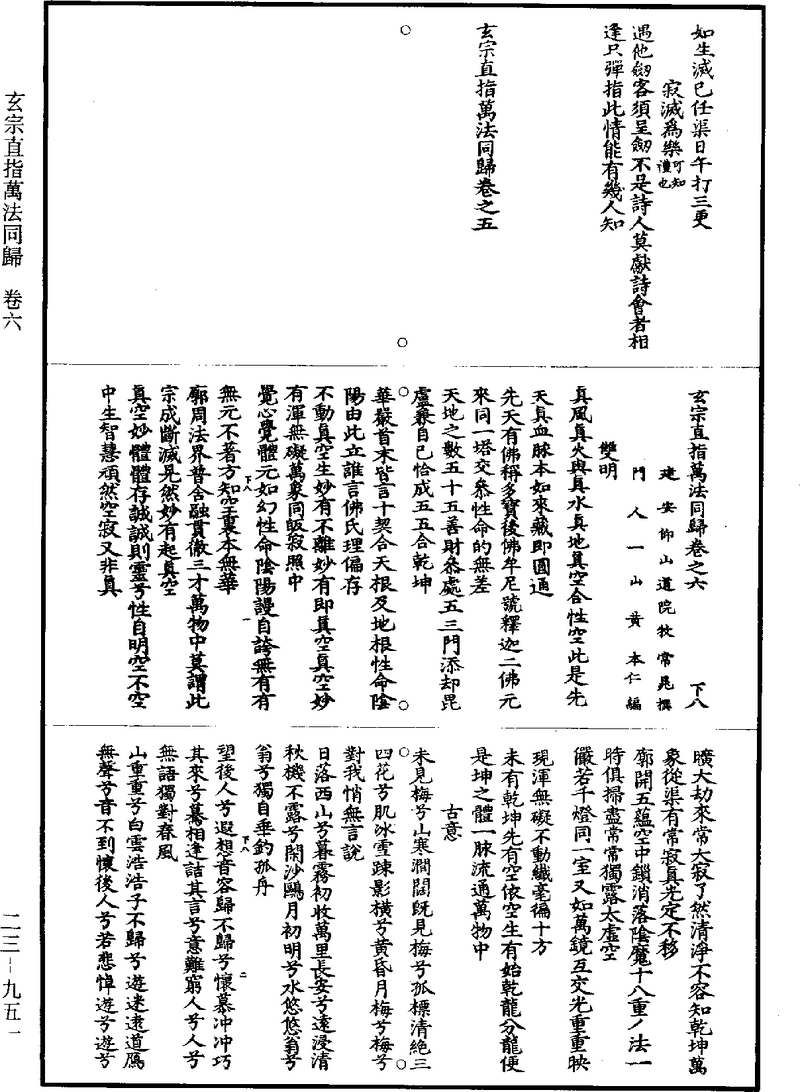 如生滅已任渠日午打三更
寂滅爲樂可知禮也
遇他劒客須呈劒不是詩人莫獻詩會者相
逢只彈指此情能有幾人知
玄宗直指萬法同歸卷之五
玄宗直指萬法同歸卷之六 下八
建安仰山道院牧常晁撰
門人一山黃本仁編
雙明
真風真火與真水真地真空合性空此是先
天真血脉本如來藏即圓通
先天有佛稱多寶後佛牟尼號釋迦二佛元
來同一塔交叅性命的無差
天地之數五十五善財叅處五三門添却毘
盧兼自己恰成五五合乾坤
華嚴首末皆言十契合天根及地根性命陰
陽由此立誰言佛氏理偏存
不動真空生妙有不離妙有即真空真空妙
有渾無礙萬象同皈寂照中
覺心覺體元如幻性命陰陽謾自誇無有有
無元不著方知空裏本無華
廓周法界普含融貫徹三才萬物中莫謂此
宗成斷滅見然妙有起真空
真空妙體體存誠誠則靈兮性自明空不空
中生智慧頑然空寂又非真
曠大劫來常大寂了然清淨不容知乾坤萬
象從渠有常寂真光定不移
廓開五蘊空中鎖消落陰魔十八重八法一
時俱掃盡常常獨露太虛空
儼若千燈同一室又如萬鏡互交光重重映
現渾無礙不動纖毫徧十方
未有乾坤先有空依空生有始乾龍分龍便
是坤之體一脉流通萬物中
古意
未見梅兮山寒澗闊既見梅兮孤標清絶三
四花兮肌冰雪踈影橫兮黃昏月梅兮梅兮
對我悄無言說
日落西山兮暮霧初收萬里長安兮遠浸清
秋機不露兮閑沙鷗月初明兮水悠悠翁兮
翁兮獨自垂釣孤舟
望後人兮遐想音容歸不歸兮懷慕冲冲巧
其來兮驀相逢詰其言兮意難窮人兮人兮
無語獨對春風
山重重兮白雲浩浩子不歸兮遊迷遠道鴈
無聲兮音不到懷後人兮若悲悼遊兮遊兮
玄宗直指萬法同歸 卷六
二三－九五一